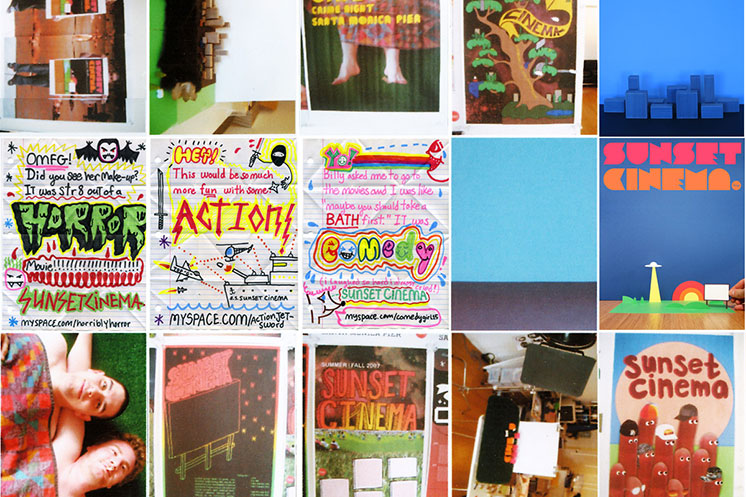 CRIME NIGHT
SANTA MONICA PIER
CINEMA
OMFG!
Did you see her make-up?
It was str8 out of a
HORROR
Movie!
SUNSET CINEMA
MYSPACE.COM/HORRIBLYHORROR
HEY!
This would be so much
more fun with some
ACTION!
S.S. SUNSET CINEMA
MYSPACE.COM/ACTIONJET-
SWORD
Billy asked me to go to
the movies and I was like
"maybe you should take a
BATH first." IT was
Comedy
SUNSET CINEMA
myspace.com/comedygirl15
SUNSET
CINEMA
SUMMER | FALL 2007
SUNSET
CINEMA
sunset
cinema